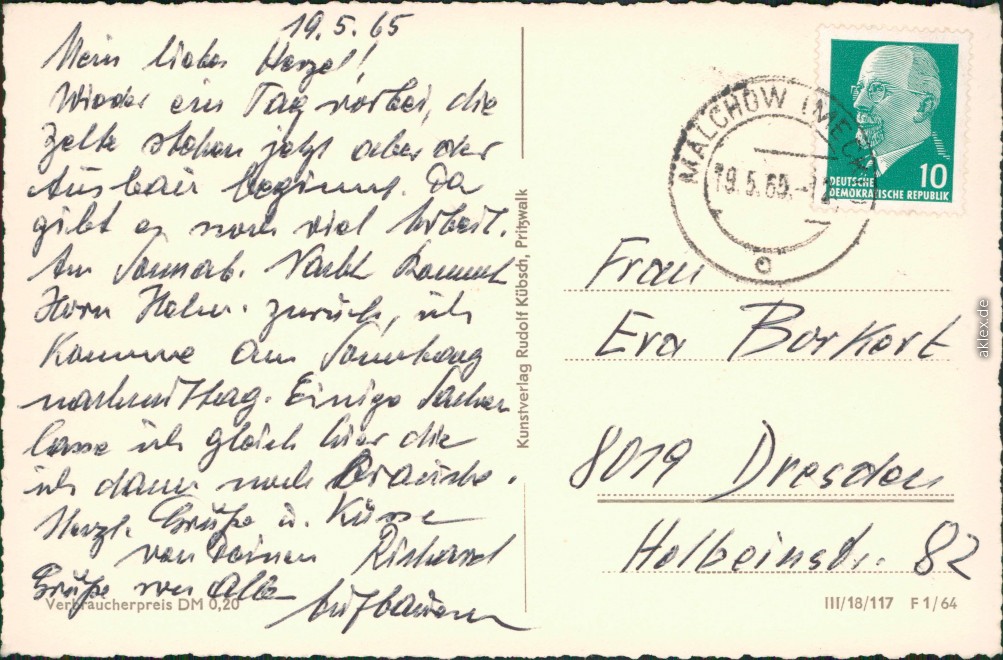 19.5.65
Mein liebes Herzel!
Wieder ein Tag vorbei, die
Zelte stehen jetzt aber der
Ausbau beginnt. Da
gibt es noch viel Arbeit.
Am Sonnab. Nacht kommt
Herr Hahn. zurück, ich
komme am Sonntag
nachmittag. Einige Sachen
lasse ich gleich hier die
ich dann noch brauche.
Herzl. Grüße u. Küsse
von Deinen Richard
Grüße von Allen
Aufbauern
Verbraucherpreis DM 0,20
Kunstverlag Rudolf Kübsch, Pritzwalk
MALCHOW (MECK
19.5.65.-12
DEUTSCHE
DEMOKRATISCHE REPUBLIK
10
Frau
Eva Borkert
8019 Dresden
Holbeinstr. 82
III/18/117 F 1/64
aklex.de